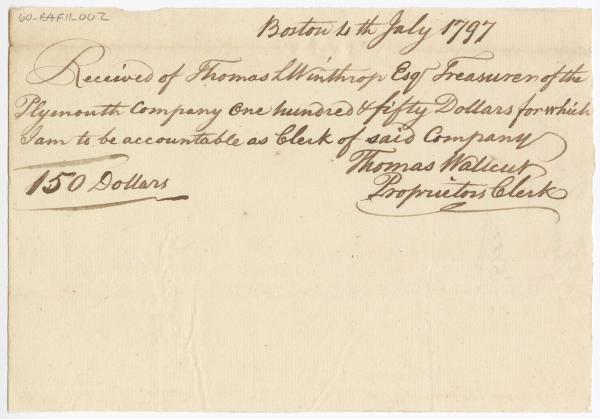 60-RAF11-002
Boston 4th July 1797
Received of Thomas L Winthrop Esqr Treasurer of the
Plymouth Company One hundred & fifty Dollars for which
I am to be accountable as Clerk of said Company
Thomas Wallcut
150 Dollars Proprietors Clerk